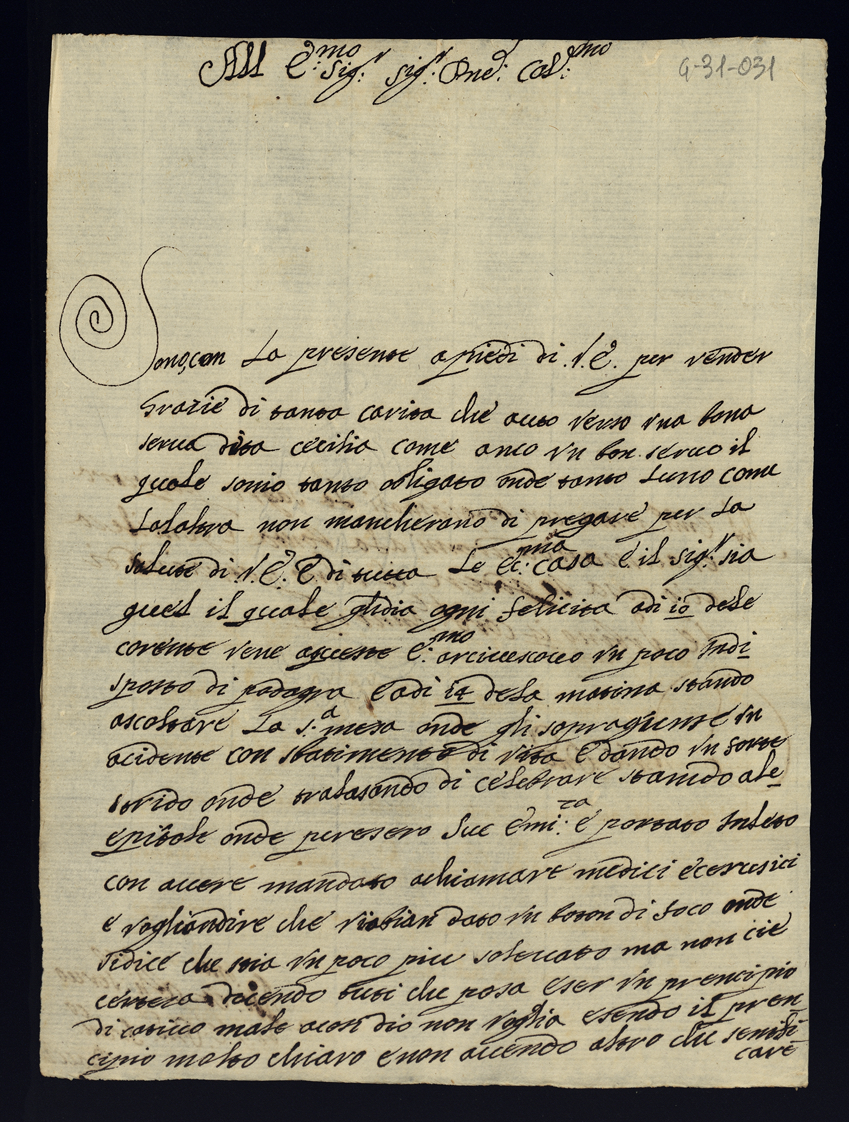 All E.mo Sig.r Sig.r Pnē. Col.mo
G-31-031
Sono, con La presente a piedi di V.E. per render
Grazie di tanta carita che auto verso vna bona
serua dita cecilia come anco vn bon seruo il
quale sonio tanto obligato onde tanto Luno come
Lalatra non mancherano di pregare per La
salute di V.E. E di tutta Le Ec.ma casa e il sig.r sia
quel il quale glidia ogni felicita adi 10 dele
corente vene E.mo arciuescouo vn poco Indi
sposto di podagra E adi 14 dela matina stando
ascoltare La S.a mesa onde gli sopragiunse vn
acidente con sbatimento di vita E dando vn forte
strido onde tralasando di celebrare stando ale
epistole onde peresero Sue Emi.za e portato Inleto
con auere mandato achiamare medici e cerusici
e voglian dire che viabian dato vn boton di foco onde
sidice che stia vn poco piu soleuato ma non cie
certeza dicendo tuti che posa eser vn prencipio
di catiuo male acon dio non voglia esendo il pren
cipio molto chiaro e non auendo altro che senifi
care